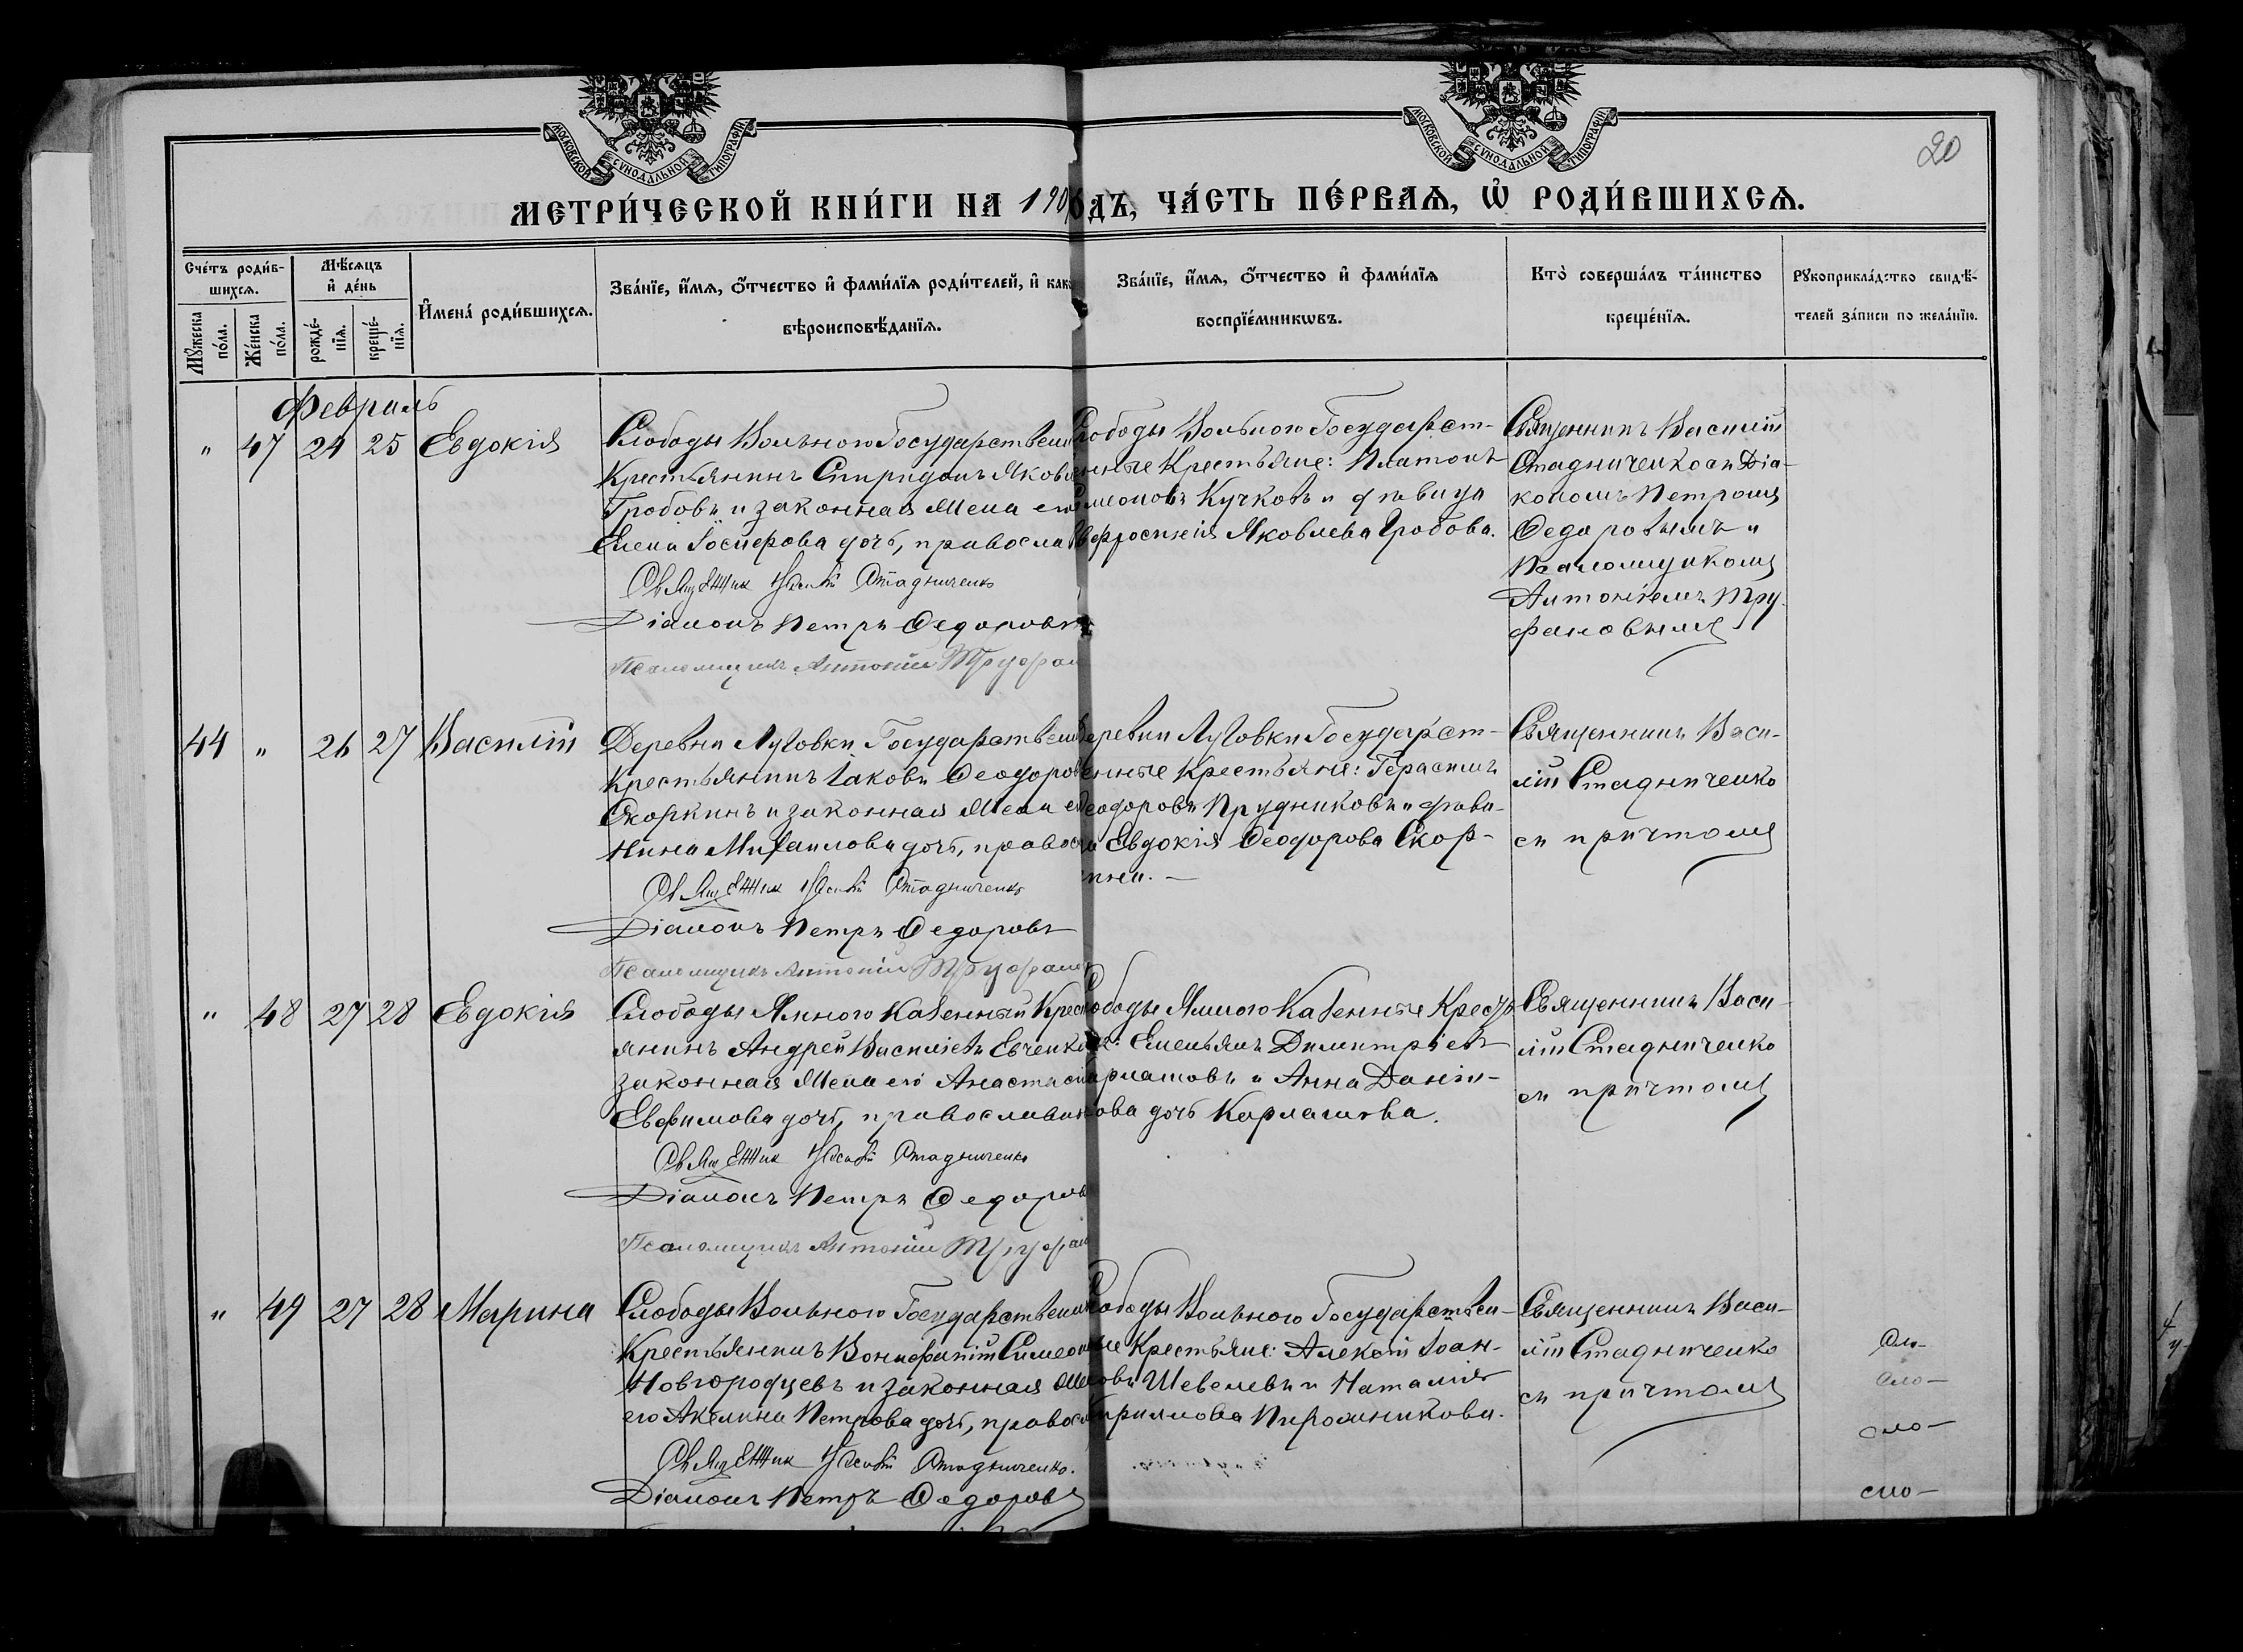 МОСКОВСКОЙ СУНОДАЛЬНОЙ ТИПОГРАФІИ
МОСКОВСКОЙ СУНОДАЛЬНОЙ ТИПОГРАФІИ
20
МЕТРИ́ЧЕСКОЙ КНИ́ГИ НА 190 ДЪ, ЧА́СТЬ ПЕ́РВАѦ, Ѡ҆ РОДИ́ВШИХСѦ.
Сче́тъ роди́в-
шихсѧ.
Мꙋ́жеска по́ла.
Же́нска по́ла.
Мѣ́сѧцъ
и҆ де́нь
рожде́-
нїѧ.
креще́-
нїѧ.
И҆мена́ роди́вшихсѧ.
Зва́нїе, и҆́мѧ, ѻ҆́тчество и҆ фами́лїѧ роди́телей, и҆ како
вѣроисповѣ́данїѧ.
Зва́нїе, и҆́мѧ, ѻ҆́тчество и҆ фами́лїѧ
воспрїе́мникѡвъ.
Кто̀ соверша́лъ та́инство
креще́нїѧ.
Рꙋкоприкла́дство свидѣ́-
телей за́писи по жела́нїю.
Февраль
" 47 24 25 Евдокія
Слободы Вольного Государствен
Крестьянинъ Спиридонъ Яковл
Гробовъ и законная жена его
Елена Іосифова дочь, правосла
Священник Василій Стадниченко
Діаконъ Петръ Федоровъ
Псаломщикъ Антоній Труфан
ободы Вольного Государст-
нные Крестьяне: Платонъ
имеоновъ Кучковъ и девица
вфросинія Яковлева Гробова.
Священникъ Василій
Стадниченко съ Діа-
кономъ Петромъ
Федоровымъ и
Псаломщикомъ
Антоніемъ Тру-
фановымъ
44 " 26 27 Василій
Деревни Луговки Государствен
Крестьянинъ Іаковъ Феодоров
Скоркинъ и законная жена е
Нина Михаилова дочь, правос
Священник Василій Стадниченко
Діаконъ Петръ Федоровъ
Псаломщикъ Антоній Труфано
еревни Луговки Государст-
енные Крестьяне: Герасимъ
еодоровъ Прудниковъ и деви-
а Евдокія Феодорова Скор-
кина. —
Священникъ Васи-
лій Стадниченко
съ причтомъ
" 48 27 28 Евдокія
Слободы Ямного Казенный Крес
янинъ Андрей Василіевъ Евченко
законная жена его Анастасі
Евфимова дочь, православн
Священник Василій Стадниченко
Діаконъ Петръ Федоров
Псаломщикъ Антоній Труфан
ободы Ямного Казенные Кресть
не: Емельянъ Димитріевъ
армановъ и Анна Даніи-
ова дочь Карманова.
Священникъ Васи-
лій Стадниченко
съ причтомъ
" 49 27 28 Марина
Слободы Вольного Государственн
Крестьянинъ Вонифатій Симеон
Новгородцевъ и законная же
его Акилина Петрова дочь, правос
Священник Василій Стадниченко.
Діаконъ Петръ Федоровъ
ободы Вольного Государствен-
ые Крестьяне: Алексій Іоан-
овъ Шевелевъ и Наталія
ириллова Пирожникова.
Священникъ Васи-
лій Стадниченко
съ причтомъ
сло-
сло-
сло-
сло-